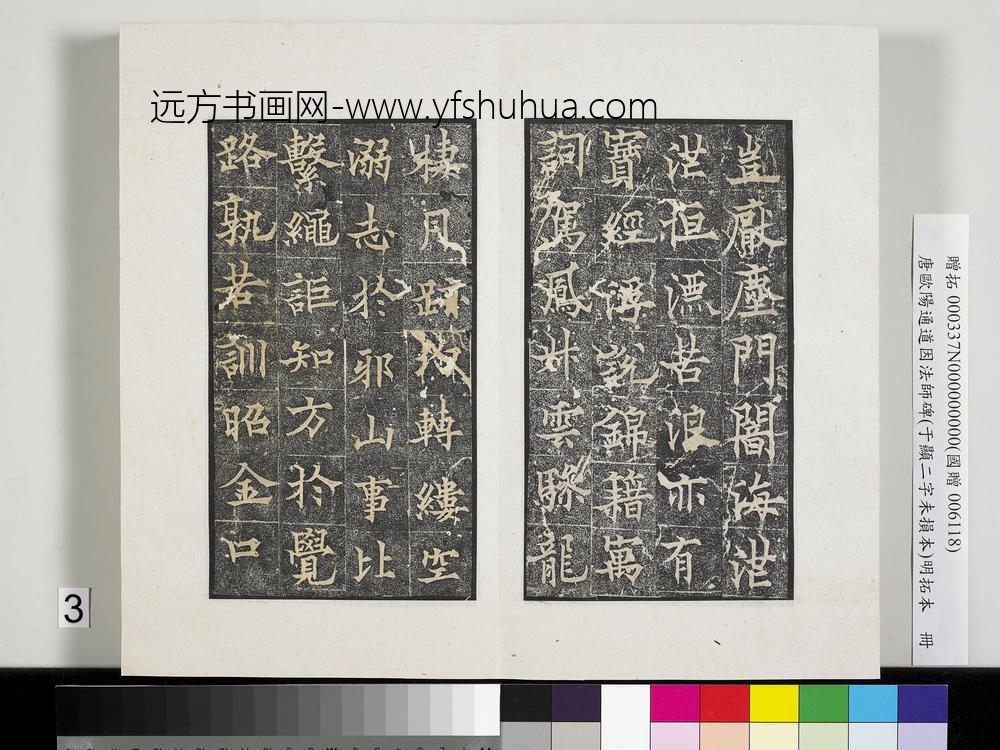 远方书画网-www.yfshuhua.com
豈厭塵門闇海茫
茫恒漂苦浪亦有
寶經浮說錦籍寓
詞駕鳳升雲驂龍
棲月跡轉縷空
溺志於邪山事比
繫繩詎知方於覺
路孰若訓昭金口
贈拓 000337N000000000(國贈 006118)
唐歐陽通道因法師碑(于顯二字未損本)明拓本 冊
3